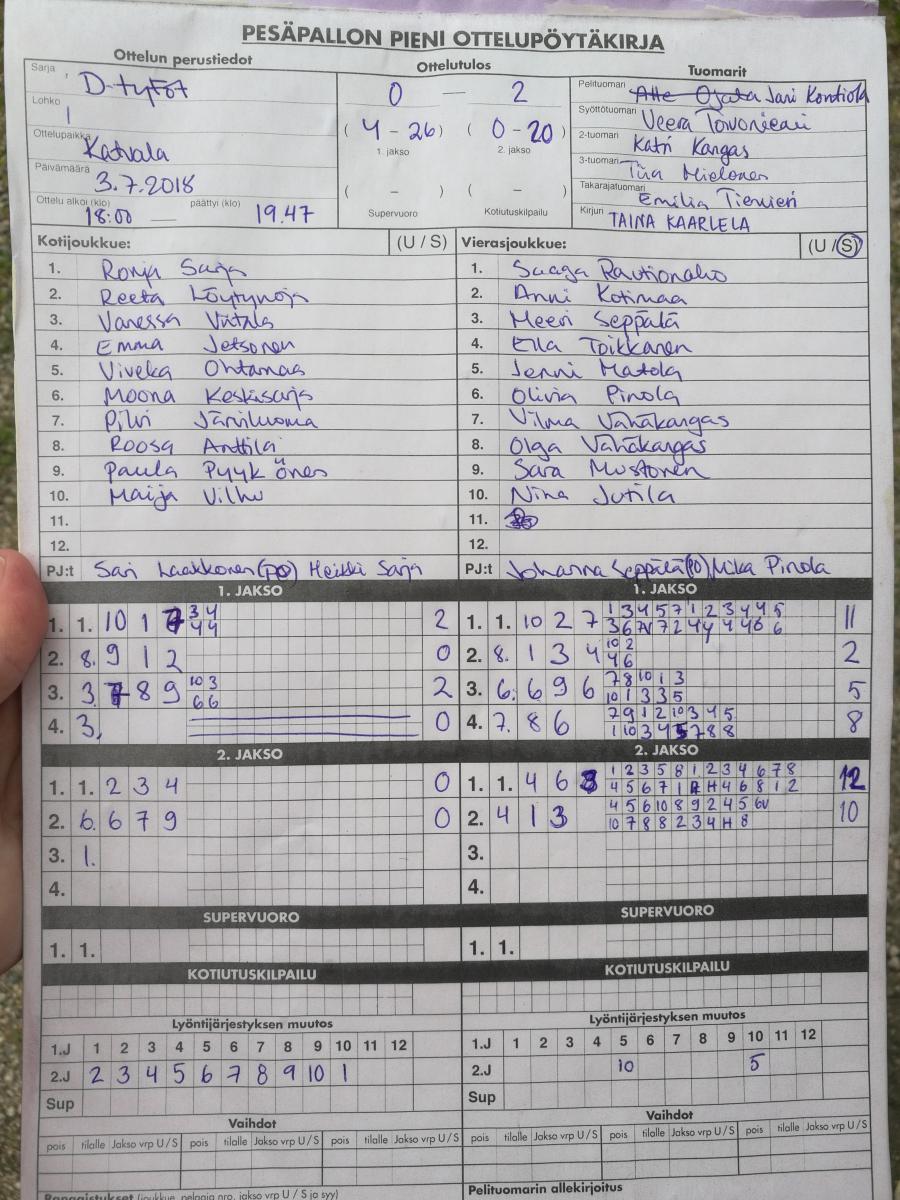 PESÄPALLON PIENI OTTELUPÖYTÄKIRJA
Ottelun perustiedot Ottelutulos Tuomarit
Sarja D-tytöt
Lohko 1
Ottelupaikka Katvala
Päivämäärä 3.7.2018
Ottelu alkoi (klo) 18:00 päättyi (klo) 19.47
0 — 2
(4 - 26) (0 - 20)
1. jakso 2. jakso
( - ) ( - )
Supervuoro Kotiutuskilpailu
Pelituomari Jari Kontiola
Syöttötuomari Veera
2-tuomari Katri Kangas
3-tuomari Tiia Mielonen
Takarajatuomari Emilia
Kirjuri TAINA KAARLELA
Kotijoukkue: (U / S) Vierasjoukkue: (U / S)
1. Ronja Sarja 1. Saaga Rautionaho
2. Reeta Löytynoja 2. Anni Kotimaa
3. Vanessa Viitala 3. Meeri Seppälä
4. Emma Jetsonen 4. Ella Toikkanen
5. Viveka Ohtamaa 5. Jenni Matola
6. Moona Keskisarja 6. Olivia Pinola
7. Pilvi Järviluoma 7. Vilma Vähäkangas
8. Roosa Anttila 8. Olga Vähäkangas
9. Paula Pyykönen 9. Sara Mustonen
10. Maija Vilhu 10. Nina Jutila
11. 11.
12. 12.
PJ:t Sari Laakkonen (PO) Heikki Sarja PJ:t Johanna Seppälä (PO), Mika Pinola
1. JAKSO 1. JAKSO
1. 1. 10 1 3 4 4 4 2 1. 1. 10 2 7 1 3 4 5 7 1 2 3 4 4 5 11
2. 8. 9 1 2 0 2. 8. 1 3 4 10 2 4 6 2
3. 3. 8 9 10 3 6 6 2 3. 6. 6 9 6 7 8 10 1 3 10 1 3 3 5 5
4. 3. 0 4. 7. 8 6 7 9 1 2 10 3 4 5 1 10 3 4 5 7 8 8 8
2. JAKSO 2. JAKSO
1. 1. 2 3 4 0 1. 1. 4 6 1 2 3 5 8 1 2 3 4 6 7 8 12
2. 6. 6 7 9 0 2. 4 1 3 4 5 6 10 8 9 2 4 5 6V 10 7 8 8 2 3 4 H 8 10
3. 1. 3.
4. 4.
SUPERVUORO SUPERVUORO
1. 1. 1. 1.
KOTIUTUSKILPAILU KOTIUTUSKILPAILU
Lyöntijärjestyksen muutos Lyöntijärjestyksen muutos
1.J 1 2 3 4 5 6 7 8 9 10 11 12 1.J 1 2 3 4 5 6 7 8 9 10 11 12
2.J 2 3 4 5 6 7 8 9 10 1 2.J 10 5
Sup Sup
Vaihdot Vaihdot
pois tilalle Jakso vrp U / S pois tilalle Jakso vrp U / S pois tilalle Jakso vrp U / S pois tilalle Jakso vrp U / S pois tilalle Jakso vrp U / S pois tilalle Jakso vrp U / S
Rangaistukset (joukkue, pelaaja nro, jakso vrp U / S ja syy) Pelituomarin allekirjoitus